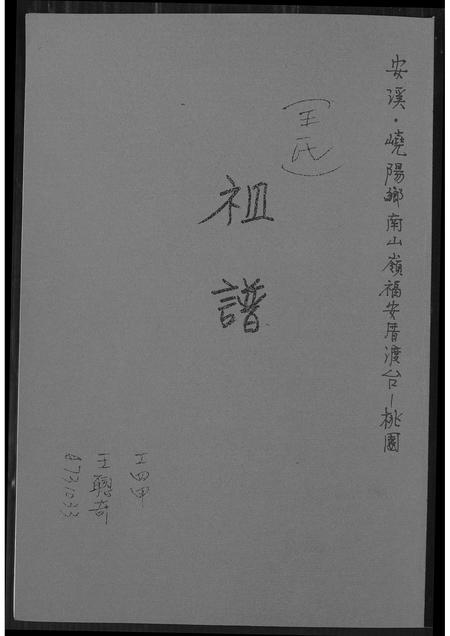 安溪·嶢陽鄉南山嶺福安厝渡台－桃園
（王氏）
祖譜
工四甲
王聰奇
B731033